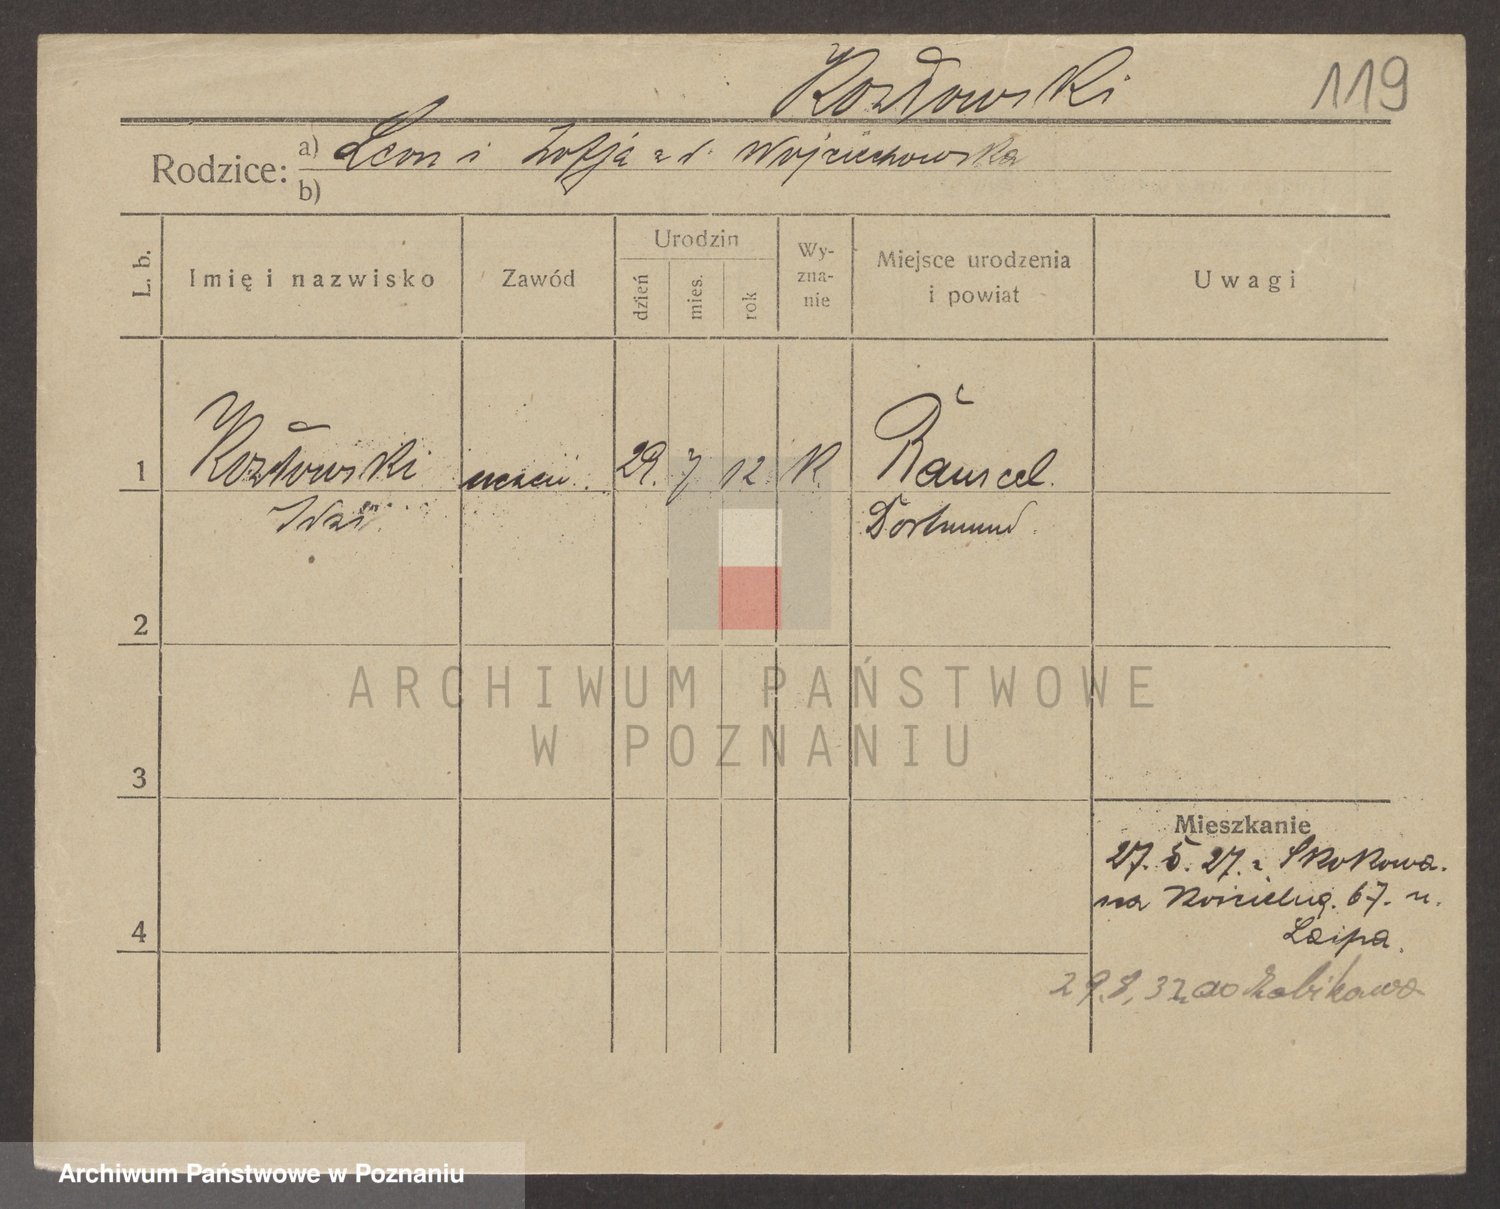 Kozłowski 119
Rodzice: a) Leon i Zofja z d. Wojciechowska
b)
L. b. Imię i nazwisko Zawód Urodzin dzień mies. rok Wy-zna-nie Miejsce urodzenia i powiat Uwagi
1 Kozłowski uczeń. 29. 7 12. K. Rauxcel.
Dortmund
2
ARCHIWUM PAŃSTWOWE
W POZNANIU
3
Mieszkanie
27. 5. 27. z Skokowa.
na Kościelną. 67. u.
4
29.8.32 do Żabikowa
Archiwum Państwowe w Poznaniu